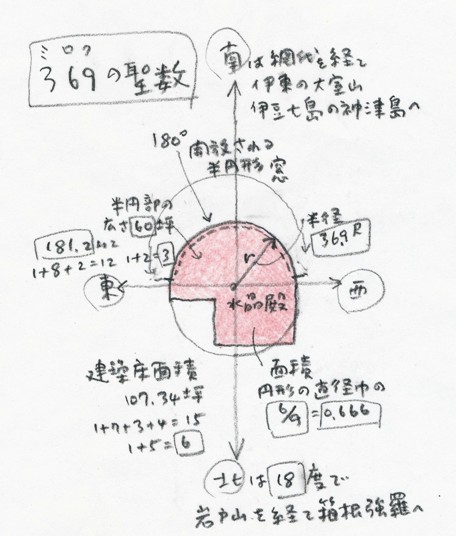 ミロク
369の聖数
南は網代を経て
伊東の大室山
伊豆七島の神津島へ
180°
開放される
半円形窓
半円部の
広さ60坪
181.2m2
1+8+2=12
1+2=3
半径
36.9R
r
東
西
水晶殿
建築床面積
107.34坪
1+7+3+4=15
1+5=6
面積
円形の直径巾の
6/9=0.666
北は18度で
岩戸山を経て箱根強羅へ